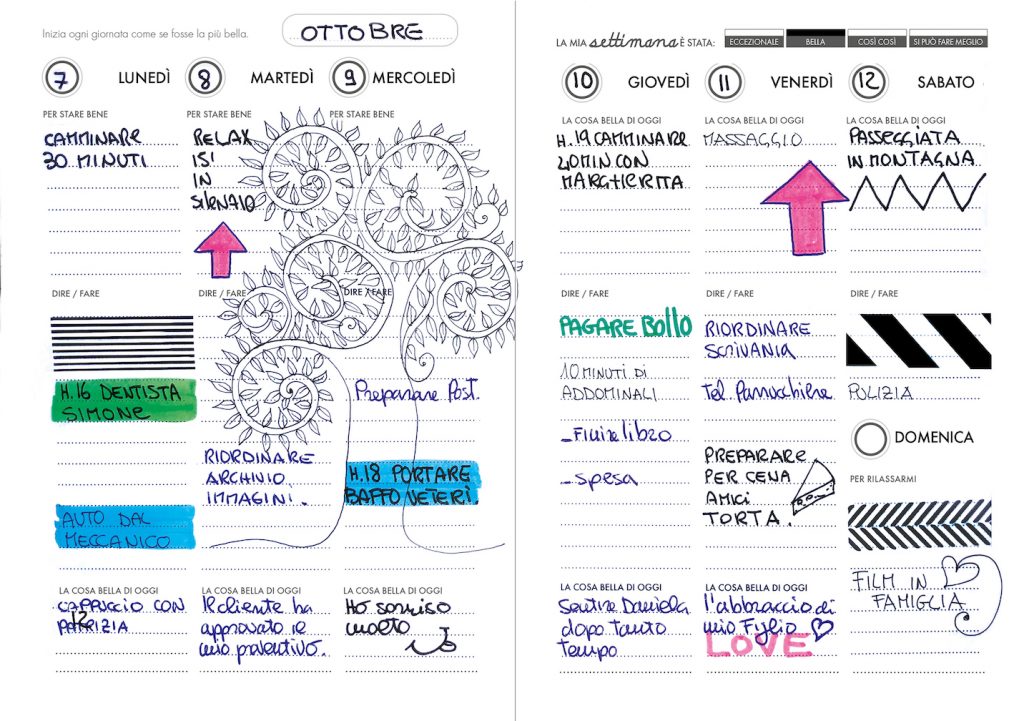 Inizia ogni giornata come se fosse la più bella.
OTTOBRE
7 LUNEDÌ
PER STARE BENE
CAMMINARE
30 MINUTI
DIRE / FARE
H.16 DENTISTA
SIMONE
AUTO DAL
MECCANICO
LA COSA BELLA DI OGGI
CAPPUCCIO CON
PATRIZIA
8 MARTEDÌ
PER STARE BENE
RELAX
15'
IN
SILENZIO
DIRE / FARE
RIORDINARE
ARCHIVIO
IMMAGINI.
LA COSA BELLA DI OGGI
Il cliente ha
approvato il
mio preventivo.
9 MERCOLEDÌ
PER STARE BENE
DIRE / FARE
Preparare Post.
H.18 PORTARE
BAFFO VETERI.
LA COSA BELLA DI OGGI
Ho sorriso
molto
LA MIA settimana È STATA:
ECCEZIONALE BELLA COSÌ COSÌ SI PUÒ FARE MEGLIO
10 GIOVEDÌ
LA COSA BELLA DI OGGI
H.19 CAMMINARE
20MIN CON
MARGHERITA
DIRE / FARE
PAGARE BOLLO
10 MINUTI DI
ADDOMINALI
- Finire libro
- Spesa
LA COSA BELLA DI OGGI
Sentire Daniela
dopo tanto
tempo
11 VENERDÌ
LA COSA BELLA DI OGGI
MASSAGGIO
DIRE / FARE
RIORDINARE
SCRIVANIA
Tel. Parrucchiere
PREPARARE
PER CENA
AMICI
TORTA.
LA COSA BELLA DI OGGI
l'abbraccio di
mio Figlio
LOVE
12 SABATO
LA COSA BELLA DI OGGI
PASSEGGIATA
IN MONTAGNA
DIRE / FARE
PULIZIA
DOMENICA
PER RILASSARMI
FILM IN
FAMIGLIA